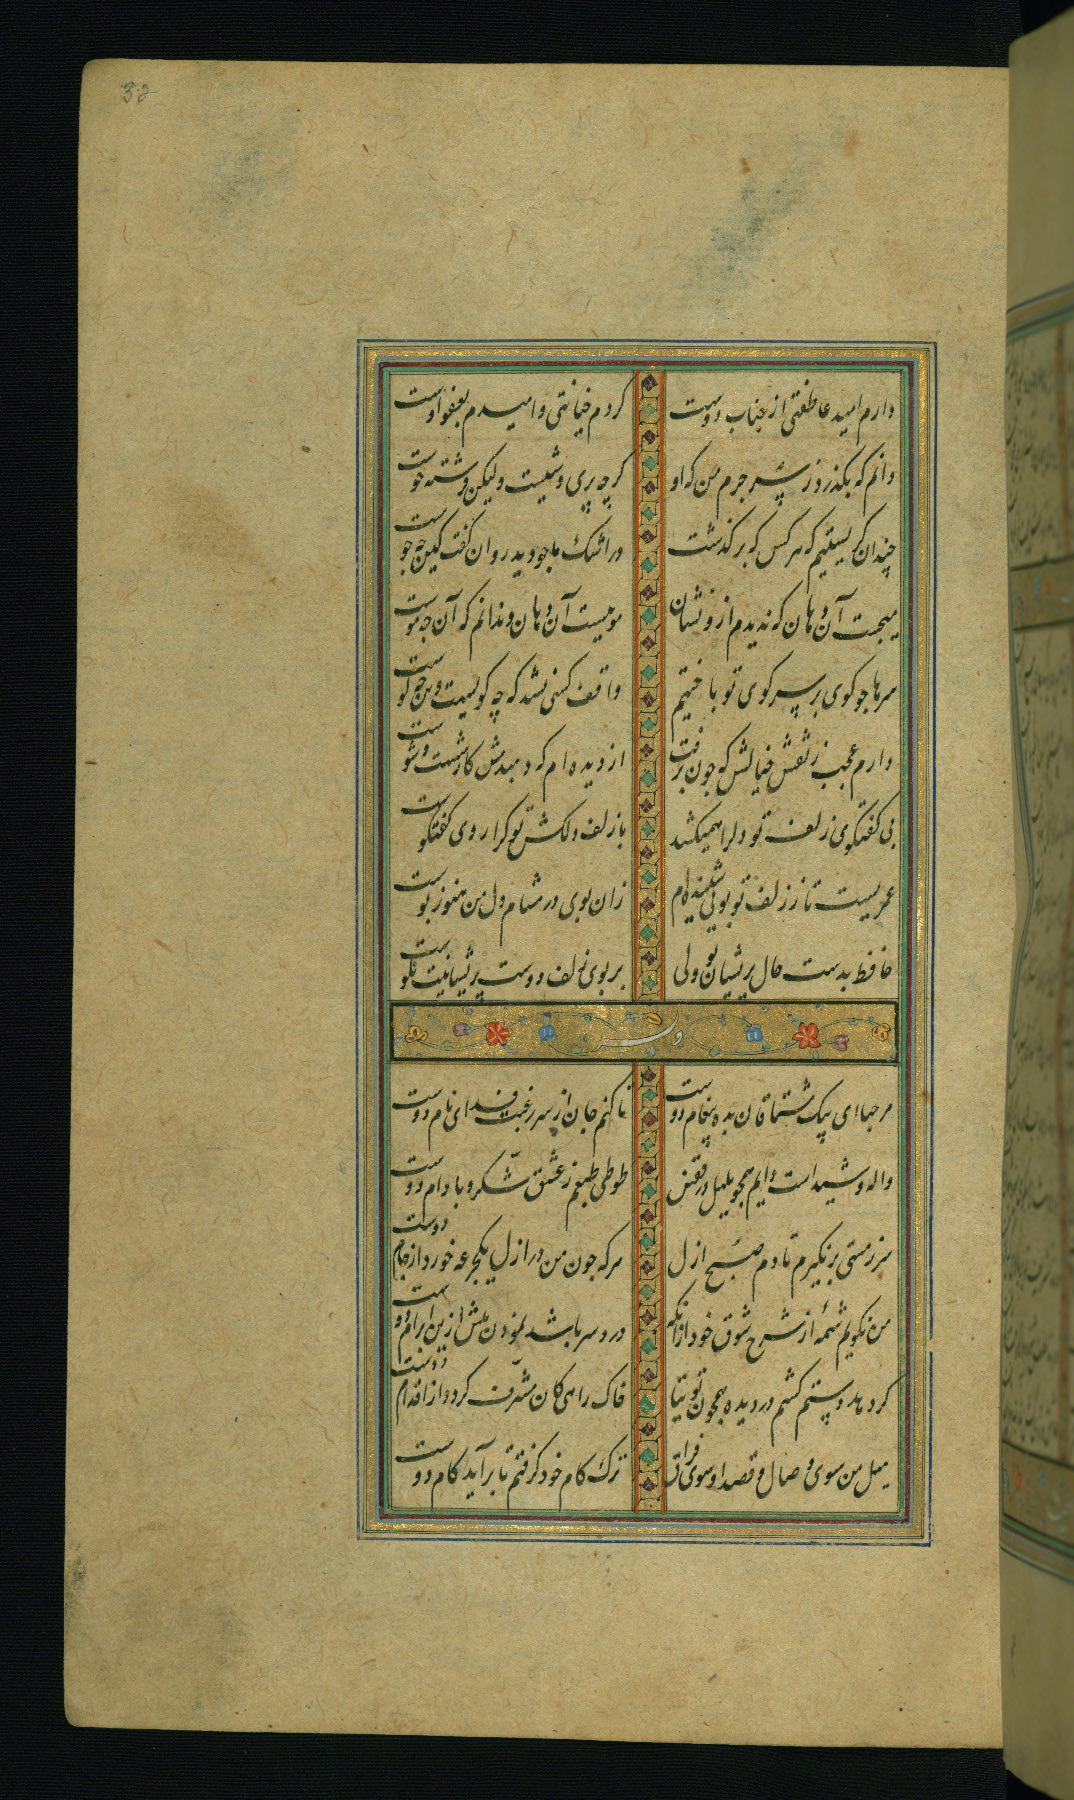 32
دارم امید عاطفتی از جناب دوست
کردم خیانتی و امیدم بعفو اوست
دانم که بگذرد ز سر جرم من که او
گرچه پری وشیست ولیکن فرشته خوست
چندان گریستیم که هر کس که برگذشت
در اشک ما چو دید روان گفت کین چه جوست
هیچست آن دهان که ندیدم ازو نشان
موییست آن میان و ندانم که آن چه موست
سرها چو گوی بر سر کوی تو باختیم
واقف کسی نشد که چه کویست و این چه گوست
دارم عجب ز نقش خیالش که چون نرفت
از دیده ام که دمبدمش کار شست و شوست
بی گفتگوی زلف تو دل را همیکشد
با زلف دلکش تو کرا روی گفتگوست
عمریست تا ز زلف تو بویی شنیده ام
زان بوی در مشام دل من هنوز بوست
حافظ بدست حال پریشان تو ولی
بر بوی زلف دوست پریشانیت نکوست
مرحبا ای پیک مشتاقان بده پیغام دوست
تا کنم جان از سر رغبت فدای نام دوست
واله و شیداست دایم همچو بلبل در قفس
طوطی طبعم ز عشق شکر و بادام دوست
سر ز مستی برنگیرم تا دم صبح ازل
هر که چون من در ازل یکجرعه خورد از جام دوست
من نگویم شمه از شرح شوق خود ازانکه
دردسر باشد نمودن بیش ازین ابرام دوست
گر دهد دستم کشم در دیده همچون توتیا
خاک راهی کان مشرف گردد از اقدام دوست
میل من سوی وصال و قصد او سوی فراق
ترک کام خود گرفتم تا برآید کام دوست